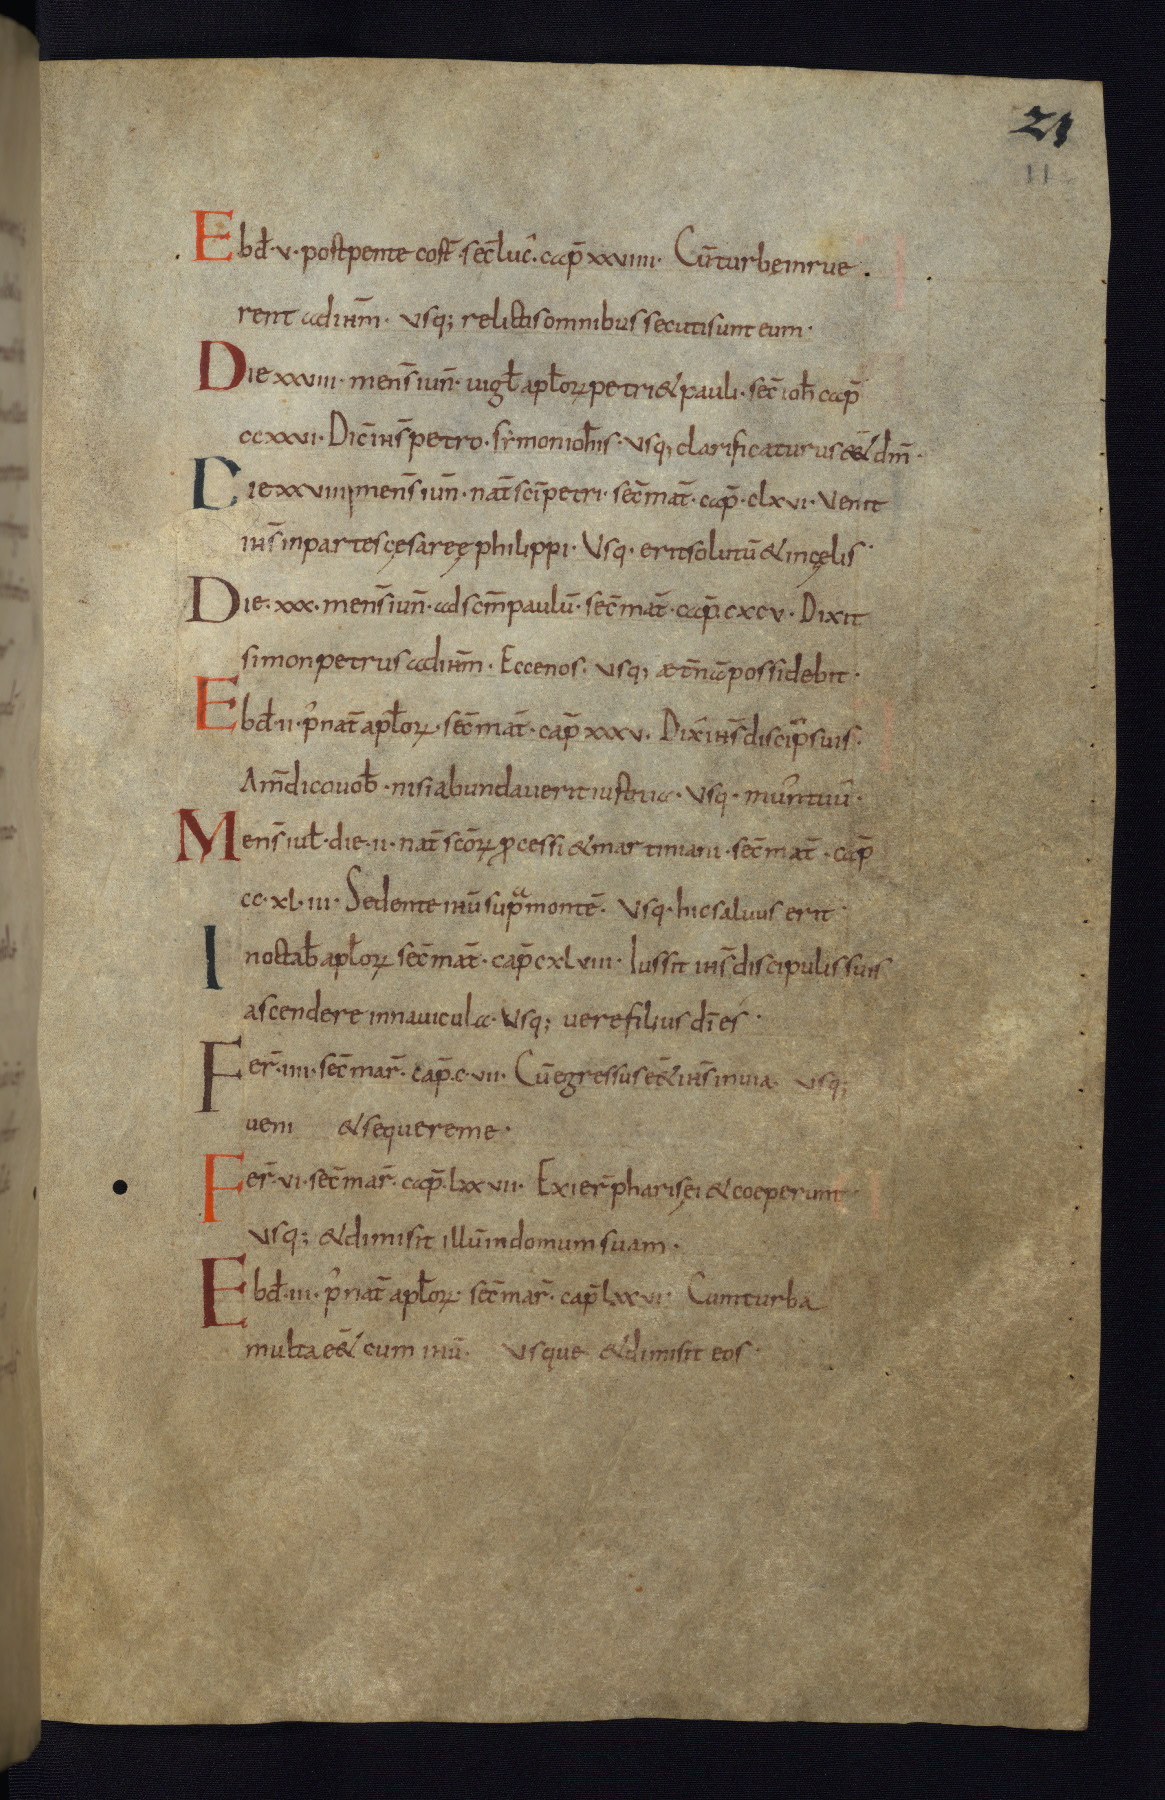 21
11
Ebd̄·v·postpentecost̄·sec̄luc̄·cap̄ xxviiii· Cūturbeinrue
rent adihm̄· vsq; relictisomnibussecutisunt eum·
Die xxviii· mens̄iun̄·uigl̄ apl̄oꝝpetri&pauli·sec̄ioh̄ cap̄
ccxxvi· Dic̄ihs̄petro·symoniohīs·vsq; clarificaturus e&̄ dm̄·
Die xxviiii mens̄iun̄·nat̄sc̄ipetri·sec̄mat̄·cap̄·clxvi·Venit
ihs̄inpartescęsaręęphilippi· Vsq·eritsolutū&incęlis·
Die·xxx·mens̄iun̄·adsc̄mpaulū·sec̄mat̄·cap̄·cxcv·Dixit
simonpetrusadihm̄·Eccenos·vsq; ætn̄āpossidebit·
Ebd̄·ii·p̄nat̄apl̄oꝝ·sec̄mat̄·cap̄xxxv·Dix̄ihs̄discip̄suis·
Am̄dicouob̄·nisiabundaveritiustitia·vsq·mun̄tuū·
Mens̄iul̄·die·ii·nat̄sc̄oꝝp̄cessi&martiniani·sec̄mat̄·cap̄
cc·xl·iii·Sedenteihūsup̄amontē· Vsq·hicsaluus erit·
Inoctab̄apl̄oꝝ sec̄mat̄·cap̄cxlviii·Iussit ihs̄discipulissuis
ascendere innauicula·Vsq; verefilius dī es·
Fer̄·iiii·sec̄mar̄·cap̄·c·vii·Cūegressuse&̄ihs̄inuia· vsq;
ueni &sequereme·
Fer̄·vi·sec̄mar̄·cap̄·lxxvii· Exier̄pharisęi&coeperunt
vsq; &dimisit illūindomumsuam·
Ebd̄·iii·p̄nat̄apl̄oꝝ·sec̄mar̄·cap̄lxxvi· Cumturba
multae&̄ cum ihū· vsque &dimisit eos·